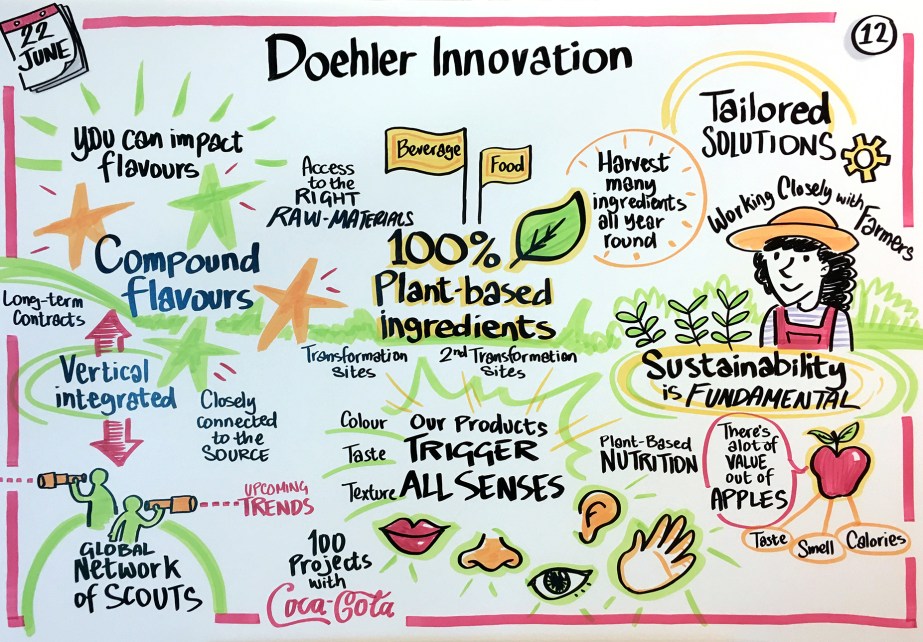 22
JUNE
12
Doehler Innovation
you can impact
flavours
Compound
flavours
Access
to the
RIGHT
RAW-MATERIALS
Beverage
Food
Harvest
many
ingredients
all year
round
Tailored
SOLUTIONS
Working Closely with Farmers
100%
Plant-based
ingredients
Transformation
sites
2nd Transformation
sites
Long-term
Contracts
Vertical
integrated
Closely
connected
to the
SOURCE
Sustainability
is FUNDAMENTAL
Colour
Taste
Texture
Our Products
TRIGGER
ALL SENSES
Plant-Based
NUTRITION
There's
alot of
VALUE
out of
APPLES
Taste
Smell
Calories
UPCOMING
TRENDS
GLOBAL
Network
of SCOUTS
100
Projects
with
Coca-Gota